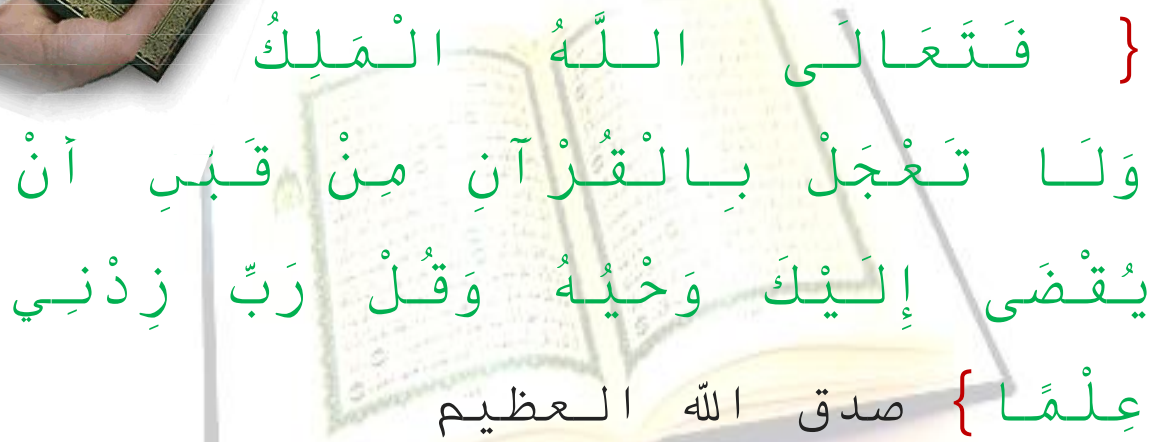 { فَتَعَالَى اللَّهُ الْمَلِكُ
وَلَا تَعْجَلْ بِالْقُرْآنِ مِنْ أنْ
يُقْضَى إِلَيْكَ وَحْيُهُ وَقُلْ رَبِّ زِدْنِي
عِلْمًا } صدق الله العظيم